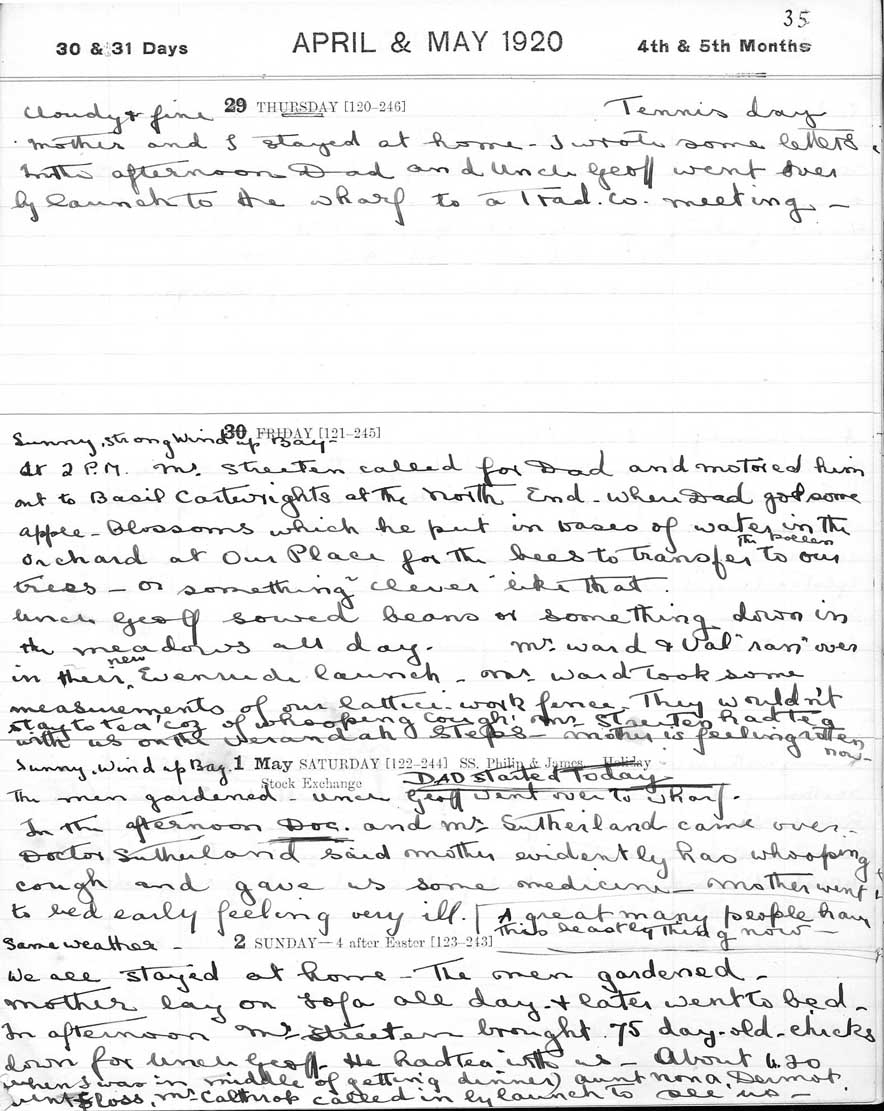 35
30 & 31 Days APRIL & MAY 1920 4th & 5th Months
Cloudy & fine 29 THURSDAY [120-246] Tennis day
Mother and I stayed at home - I wrote some letters.
In the afternoon Dad and Uncle Geoff went over
by launch to the wharf to a Trad. Co. meeting. -
30 FRIDAY [121-245]
Sunny, strong Wind up Bay -
At 2 P.M. Mr. Streeten called for Dad and motored him
out to Basil Cartwrights at the North End - where Dad got some
apple - Blossoms which he put in vases of water in the
orchard at Our Place for the bees to transfer the pollen to our
trees - or something "clever" like that.
Uncle Geoff sowed beans or something down in
the meadows all day. Mr. Ward & Val "ran" over
in their new Evenrude launch - Mr. Ward took some
measurements of our lattice-work fence. They wouldn't
stay to tea 'coz of whooping cough! Mr. Streeten had tea
with us on the verandah steps - Mother is feeling rotten
now -
Sunny, Wind up Bay. 1 May SATURDAY [122-244] SS. Philip & James. Holiday
Stock Exchange DAD started Today
The men gardened. Uncle Geoff went over to wharf.
In the afternoon Doc. and Mrs Sutherland came over.
Doctor Sutherland said mother evidently has whooping
cough and gave us some medicine - Mother went
to bed early feeling very ill. A great many people have
this beastly thing now -
Same weather - 2 SUNDAY-4 after Easter [123-243]
We all stayed at home - The men gardened -
Mother lay on sofa all day - & later went to bed -
In afternoon Mr. Streeten brought 75 day-old-chicks
down for Uncle Geoff - He had tea with us - About 6.30
(when I was in middle of getting dinner) Aunt Nona, Dermot,
Floss, Mr Calthrop called in by launch to see us -